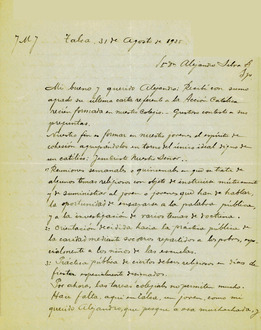 J M J Talca, 31 de Agosto de 1920
Sr Dr. Alejandro Silva B
Stgo
Mi bueno y querido Alejandro: Recibí con sumo
agrado su última carta referente a la Acción Católica
recién formada en nuestro Colegio. Gustoso contesto a sus
preguntas.
Nuestro fin es formar en nuestros jóvenes el espíritu de
cohesión agrupándolos en torno del único ideal digno de
un católico: Jesucristo Nuestro Señor.
Reuniones semanales o quincenales en que se trata de
algunos temas religiosos con objeto de instruirse mutuamente
y de suministrar al joven o jóvenes que han de hablar
la oportunidad de ensayarse a la palabra pública
y a la investigación de varios temas de doctrina.
2: Orientación decidida hacia la práctica pública de
la caridad mediante socorros repartidos a los pobres,
especialmente a los niños de las escuelas.
3: Práctica pública de ciertos deberes religiosos en días de
fiestas especialmente designados.
Por ahora, las tareas colegiales no permiten mucho.
Hace falta, aquí en Talca, un joven, como mi
querido Alejandro, que pesque a esa muchachada, y